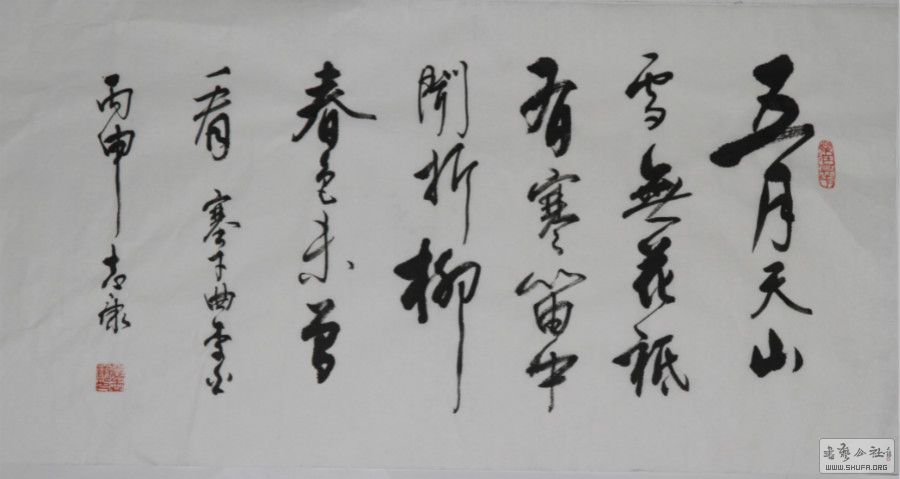 五月天山
雪無花祗
有寒笛中
聞折柳
春色未曽
看 塞下曲李白
丙申 志康
書藝公社
WWW.SHUFA.ORG